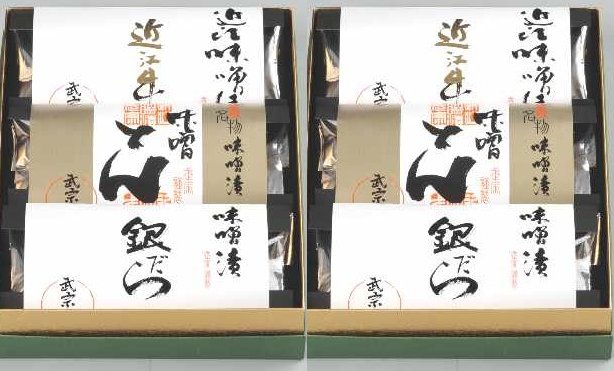 近江味噌仕
近江牛
武宗
名物
味噌漬
味噌
とん
武宗
味噌漬
銀だら
武宗
近江味噌仕
近江牛
武宗
名物
味噌漬
味噌
とん
武宗
味噌漬
銀だら
武宗